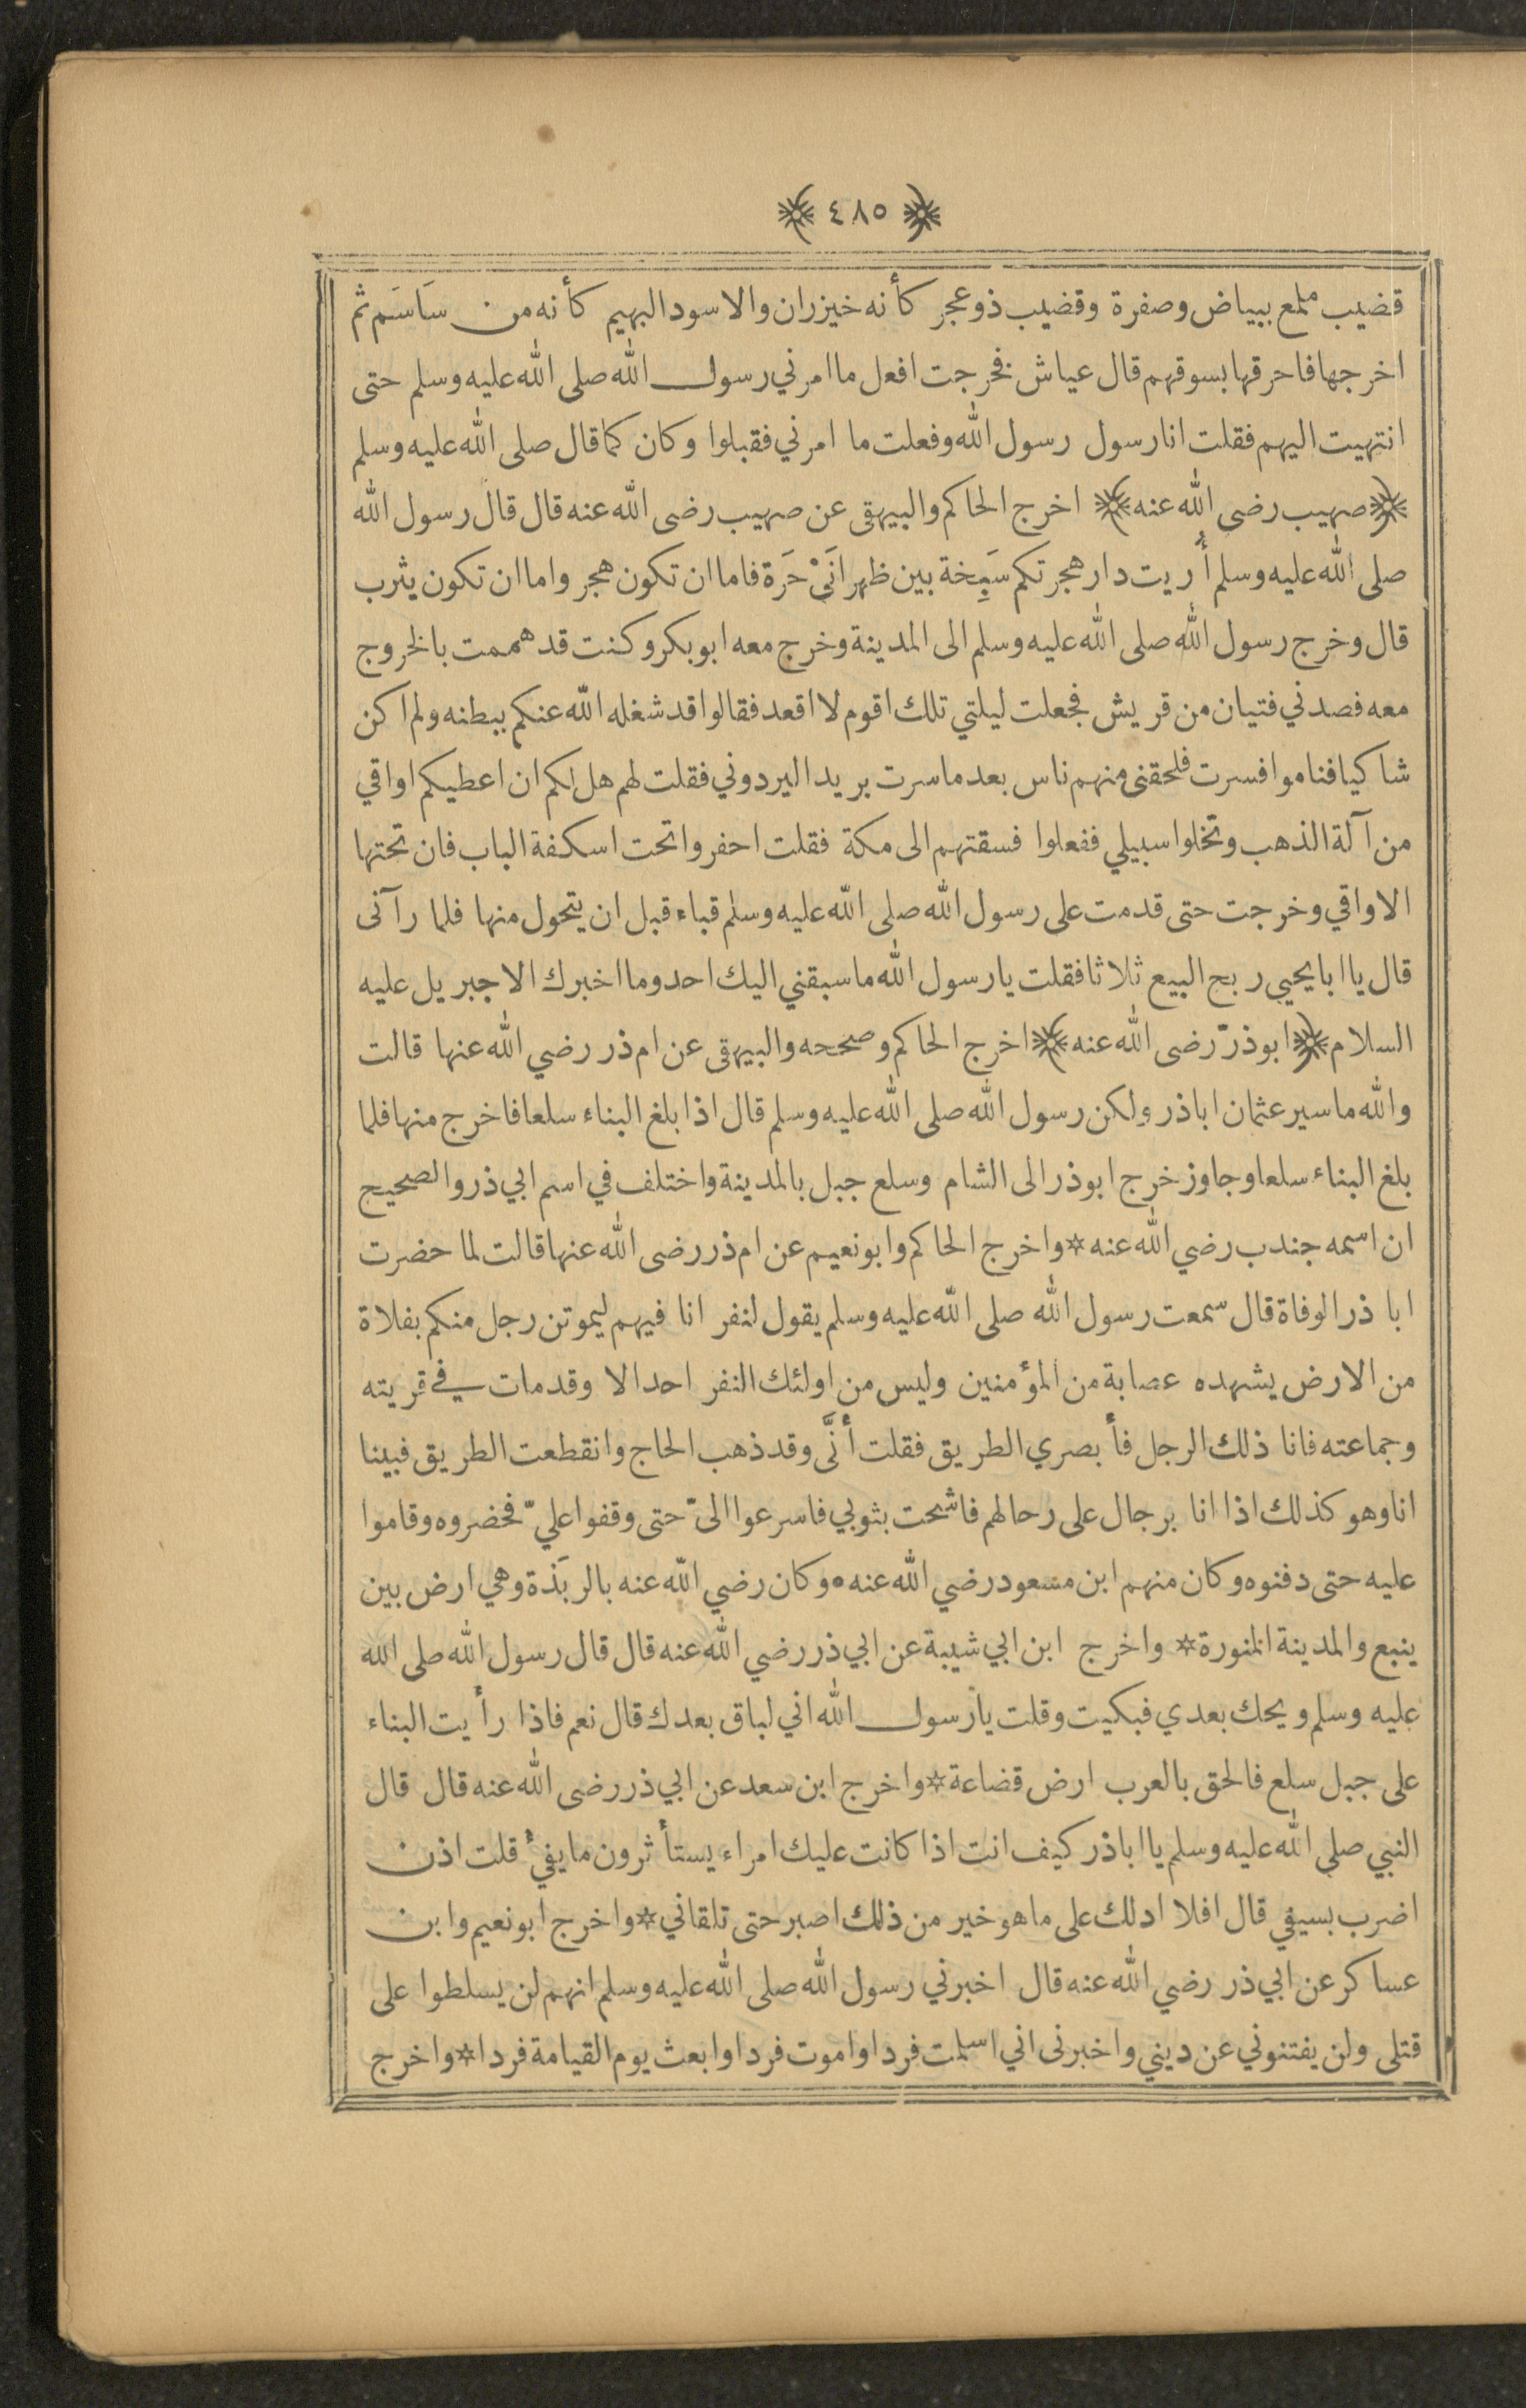 ﴿ ٤٨٥ ﴾
قضيب ملمع ببياض وصفرة وقضيب ذو عجر كأنه خيزران والاسود البهيم كأنه من سَاسَم ثم
اخرجها فاحرقها بسوقهم قال عياش فخرجت افعل ما امرني رسول الله صلى الله عليه وسلم حتى
انتهيت اليهم فقلت انا رسول رسول الله وفعلت ما امرني فقبلوا وكان كما قال صلى الله عليه وسلم
﴿ صهيب رضى الله عنه ﴾ اخرج الحاكم والبيهقى عن صهيب رضى الله عنه قال قال رسول الله
صلى الله عليه وسلم أُريت دار هجرتكم سَبِخة بين ظهرانَىْ حَرَة فاما ان تكون هجر واما ان تكون يثرب
قال وخرج رسول الله صلى الله عليه وسلم الى المدينة وخرج معه ابو بكر وكنت قد هممت بالخروج
معه فصدني فتيان من قريش فجعلت ليلتي تلك اقوم لا اقعد فقالوا قد شغله الله عنكم ببطنه ولم اكن
شاكيا فناموا فسرت فلحقنى منهم ناس بعد ما سرت بريد اليردوني فقلت لهم هل لكم ان اعطيكم اواقي
من آلة الذهب وتخلوا سبيلي ففعلوا فسقتهم الى مكة فقلت احفروا تحت اسكفة الباب فان تحتها
الاواقي وخرجت حتى قدمت على رسول الله صلى الله عليه وسلم قباء قبل ان يتحول منها فلما رآنى
قال يا ابا يحيى ربح البيع ثلاثا فقلت يا رسول الله ما سبقني اليك احد وما اخبرك الا جبريل عليه
السلام ﴿ ابو ذرّ رضى الله عنه ﴾ اخرج الحاكم وصححه والبيهقى عن ام ذر رضي الله عنها قالت
والله ما سير عثمان اباذر ولكن رسول الله صلى الله عليه وسلم قال اذا بلغ البناء سلعا فاخرج منها فلما
بلغ البناء سلعا وجاوز خرج ابو ذر الى الشام وسلع جبل بالمدينة واختلف في اسم ابي ذر والصحيح
ان اسمه جندب رضي الله عنه * واخرج الحاكم وابو نعيم عن ام ذر رضى الله عنها قالت لما حضرت
ابا ذر الوفاة قال سمعت رسول الله صلى الله عليه وسلم يقول لنفر انا فيهم ليموتن رجل منكم بفلاة
من الارض يشهده عصابة من المؤمنين وليس من اولئك النفر احد الا وقد مات في قريته
وجماعته فانا ذلك الرجل فأبصري الطريق فقلت أنَّى وقد ذهب الحاج وانقطعت الطريق فبينا
انا وهو كذلك اذا انا برجال على رحالهم فاشحت بثوبي فاسرعوا الىّ حتى وقفوا عليّ فحضروه وقاموا
عليه حتى دفنوه وكان منهم ابن مسعود رضي الله عنه • وكان رضي الله عنه بالربَذة وهي ارض بين
ينبع والمدينة المنورة * واخرج ابن ابي شيبة عن ابي ذر رضي الله عنه قال قال رسول الله صلى الله
عليه وسلم ويحك بعدي فبكيت وقلت يا رسول الله اني لباق بعدك قال نعم فاذا رأيت البناء
على جبل سلع فالحق بالعرب ارض قضاعة * واخرج ابن سعد عن ابي ذر رضى الله عنه قال قال
النبي صلى الله عليه وسلم يا اباذر كيف انت اذا كانت عليك امراء يستأثرون ما يفئ قلت اذن
اضرب بسيفي قال افلا ادلك على ما هو خير من ذلك اصبر حتى تلقاني * واخرج ابو نعيم وابن
عساكر عن ابي ذر رضي الله عنه قال اخبرني رسول الله صلى الله عليه وسلم انهم لن يسلطوا على
قتلى ولن يفتنوني عن ديني واخبرنى اني اسلمت فردا واموت فردا وابعث يوم القيامة فردا * واخرج